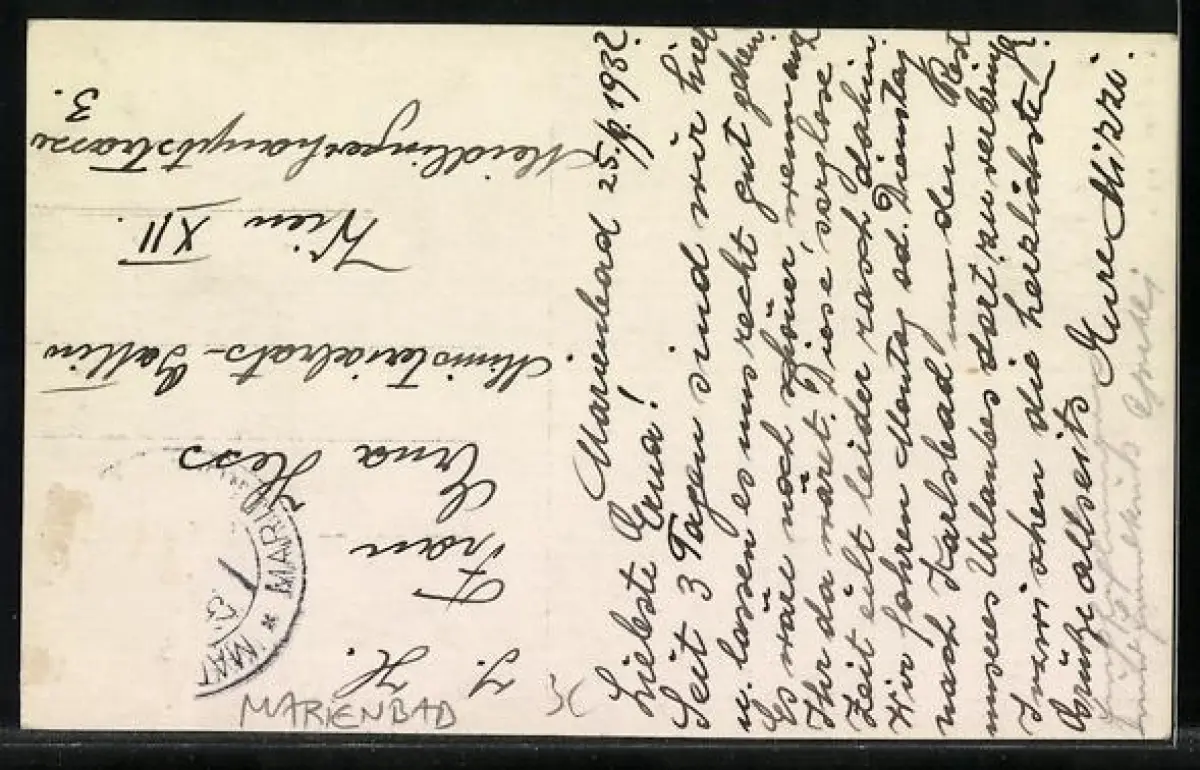 Marienbad 25/9. 1932.
Liebste Erna!
Seit 3 Tagen sind wir hier
u. lassen es uns recht gut gehen.
Es wäre noch schöner, wenn auch
Ihr da wäret. Diese sorglose
Zeit eilt leider rasch dahin.
Wir fahren Montag od. Dienstag
nach Karlsbad um den Rest
unseres Urlaubes dort zu verbringen.
Inzwischen die herzlichsten
Grüße allseits Eure Mizzi.
I. H.
Frau
Erna Hess
Ministerialrats-Gattin
Wien XII.
Meidlingerhauptstrasse
3.
MARIENBAD
* MARI
MARIENBAD